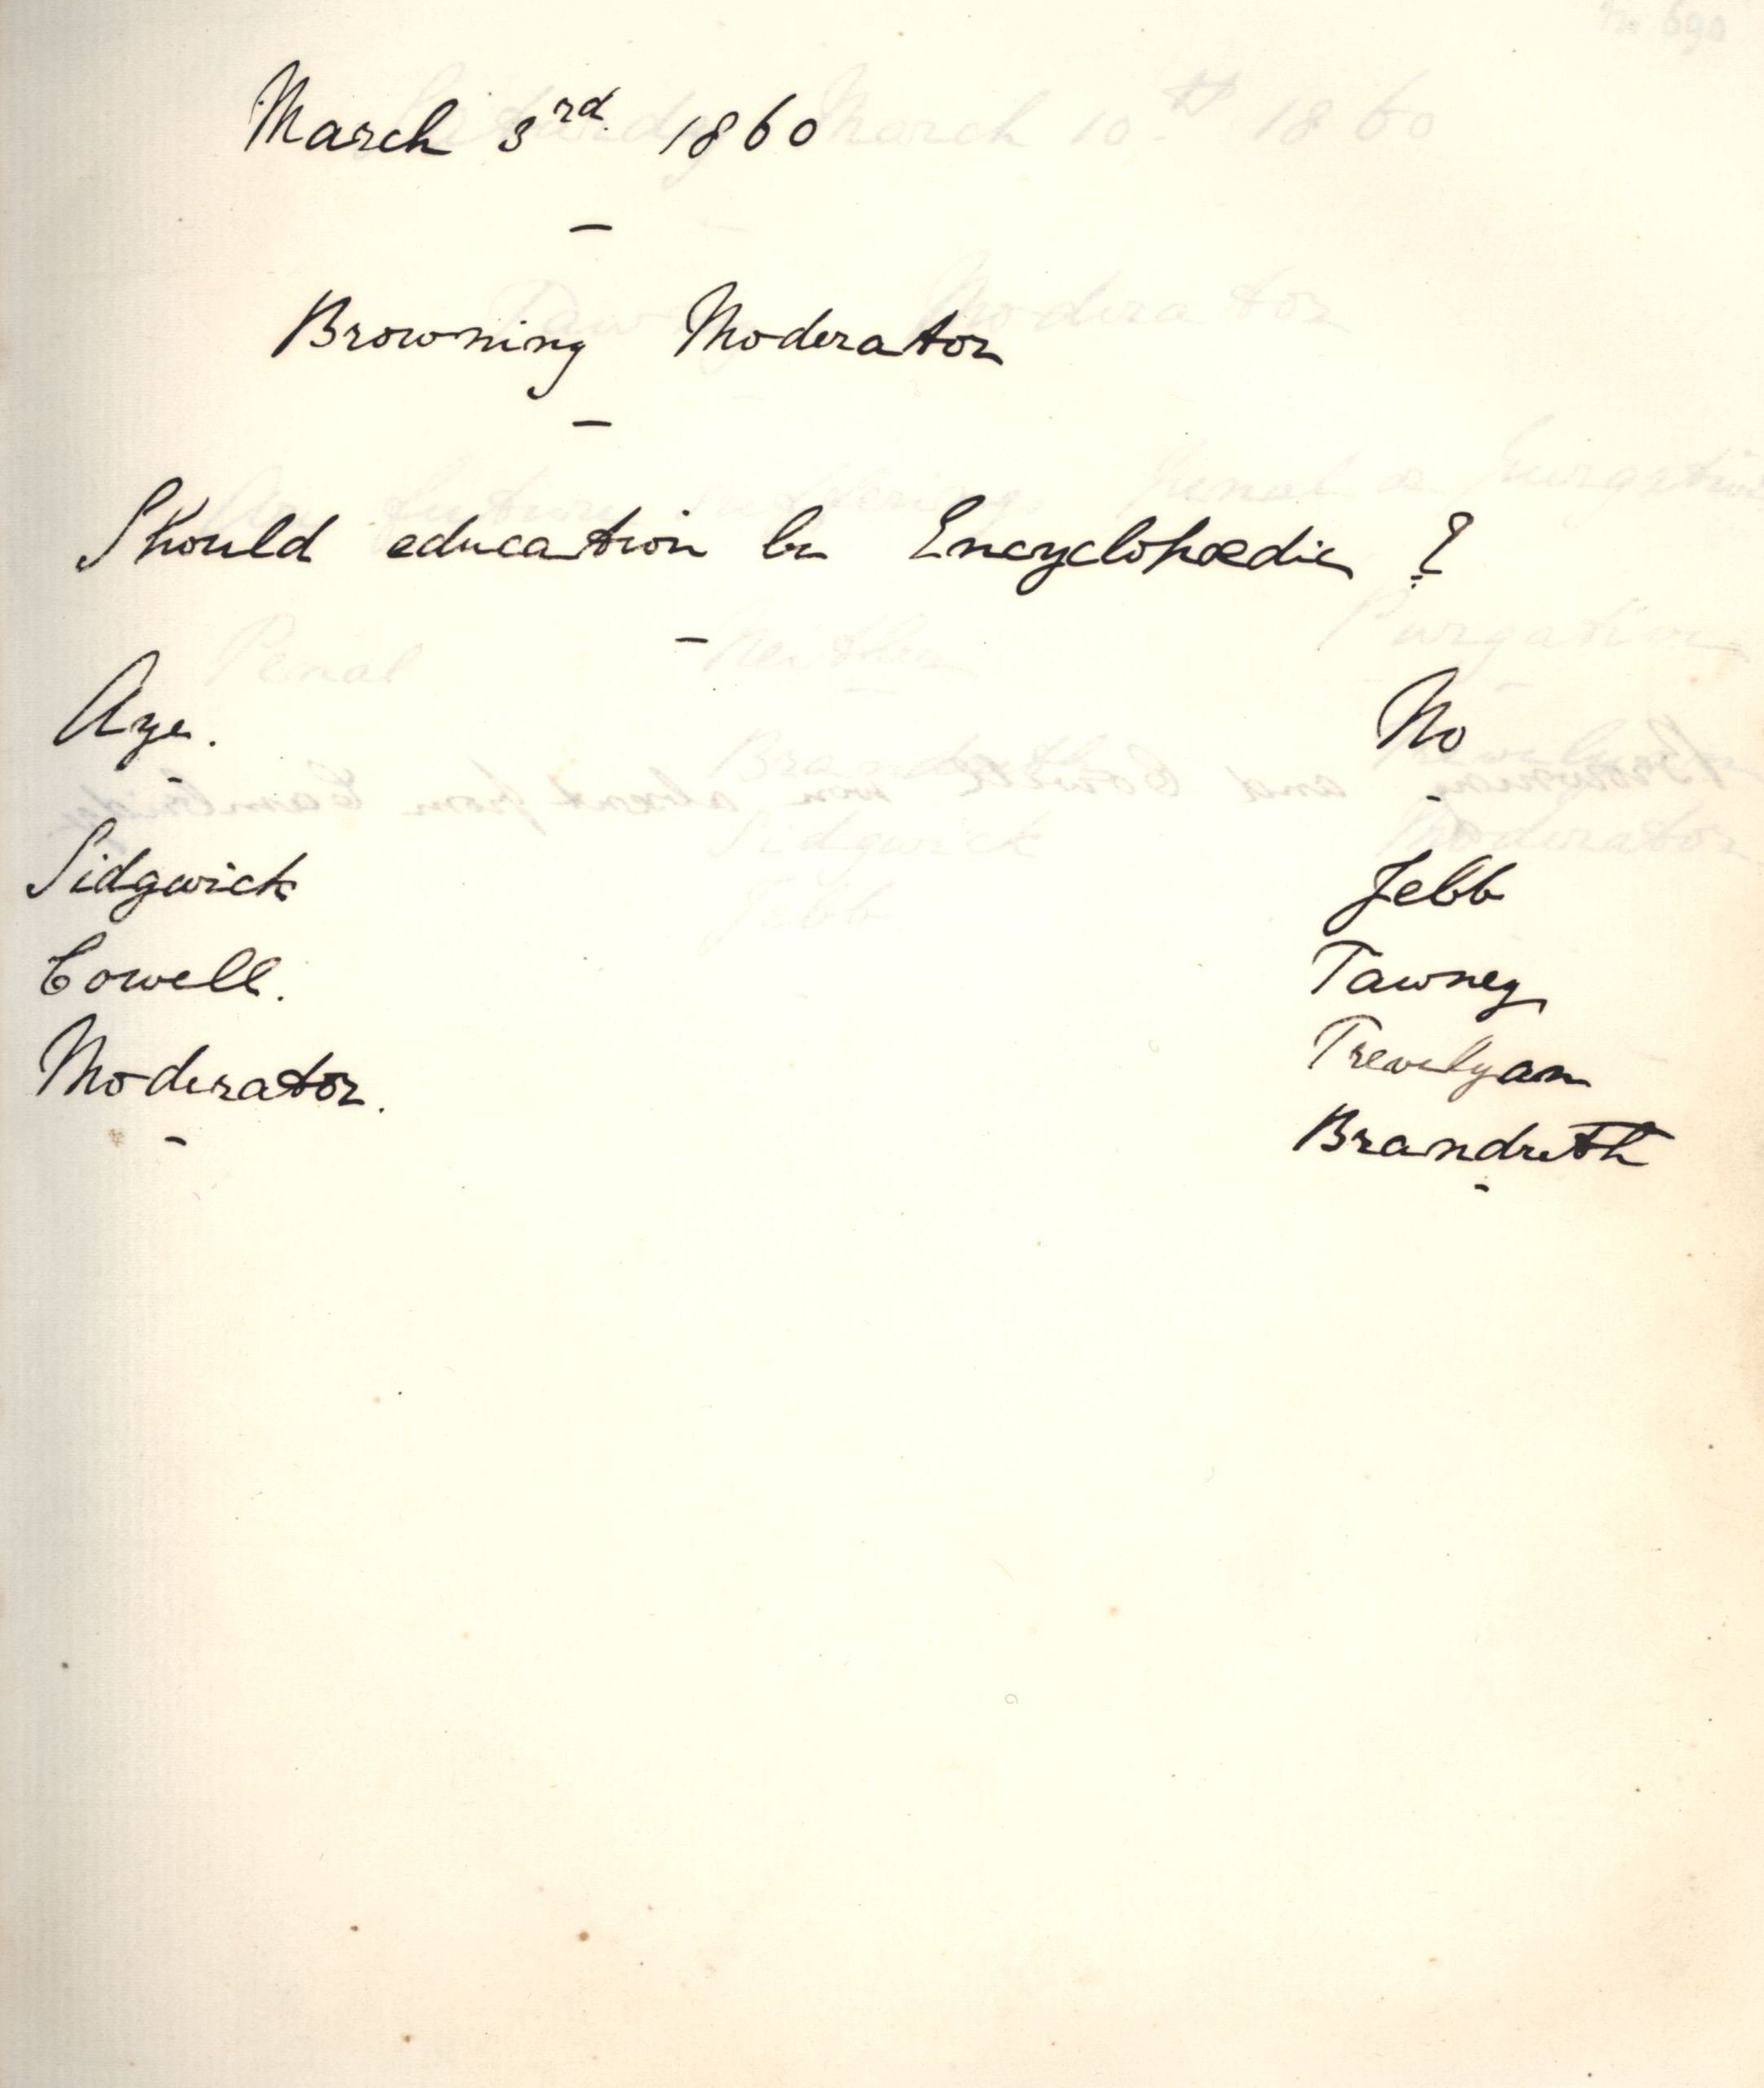 March 3rd. 1860
Browning Moderator
Should education be Encyclopædic ?
Aye. No
Sidgwick Jebb
Cowell. Tawney
Moderator. Trevelyan
Brandreth